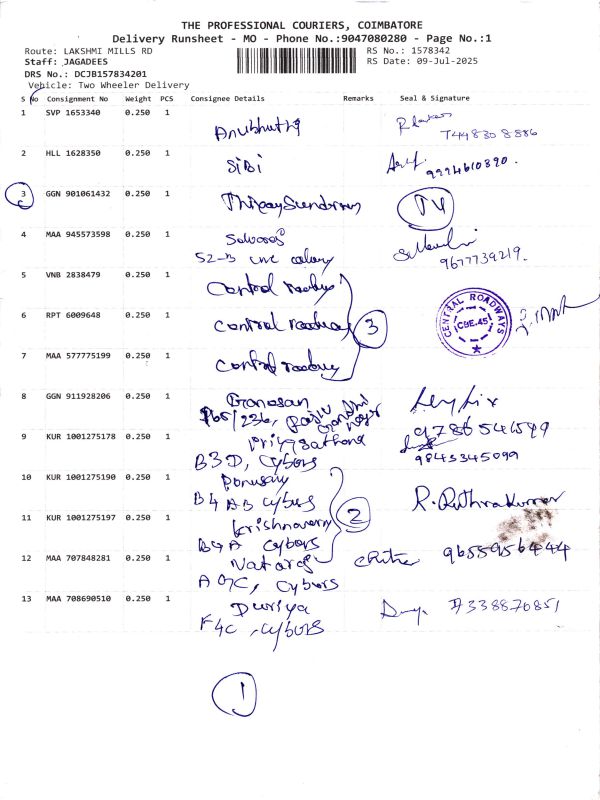 THE PROFESSIONAL COURIERS, COIMBATORE
Delivery Runsheet - MO - Phone No.:9047080280 - Page No.:1
Route: LAKSHMI MILLS RD
RS No.: 1578342
Staff: JAGADEES
RS Date: 09-Jul-2025
DRS No.: DCJB157834201
Vehicle: Two Wheeler Delivery
S No Consignment No Weight PCS Consignee Details Remarks Seal & Signature
1 SVP 1653340 0.250 1
Anubhuthi
7448308886
2 HLL 1628350 0.250 1
SiBi
9994610890.
3 GGN 901061432 0.250 1
TM
4 MAA 945573598 0.250 1
9677739219.
5 VNB 2838479 0.250 1
Central
6 RPT 6009648 0.250 1
Central
3
CENTRAL ROADWAYS
CBE.45
7 MAA 577775199 0.250 1
Central
8 GGN 911928206 0.250 1
Gandhi
9786541599
9 KUR 1001275178 0.250 1
9843345099
B3D, Cybors
10 KUR 1001275190 0.250 1
Ponusay
B4 AB Cybors
R. Ruthrakumar
2
11 KUR 1001275197 0.250 1
Krishnaveny
B4A Cybors
12 MAA 707848281 0.250 1
Nataraj
9655956444
A07C, Cybors
13 MAA 708690510 0.250 1
Duriya
7338870851
F4C, Cybors
1